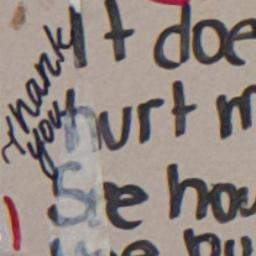 Thank
you
It doe
hurt m
See how